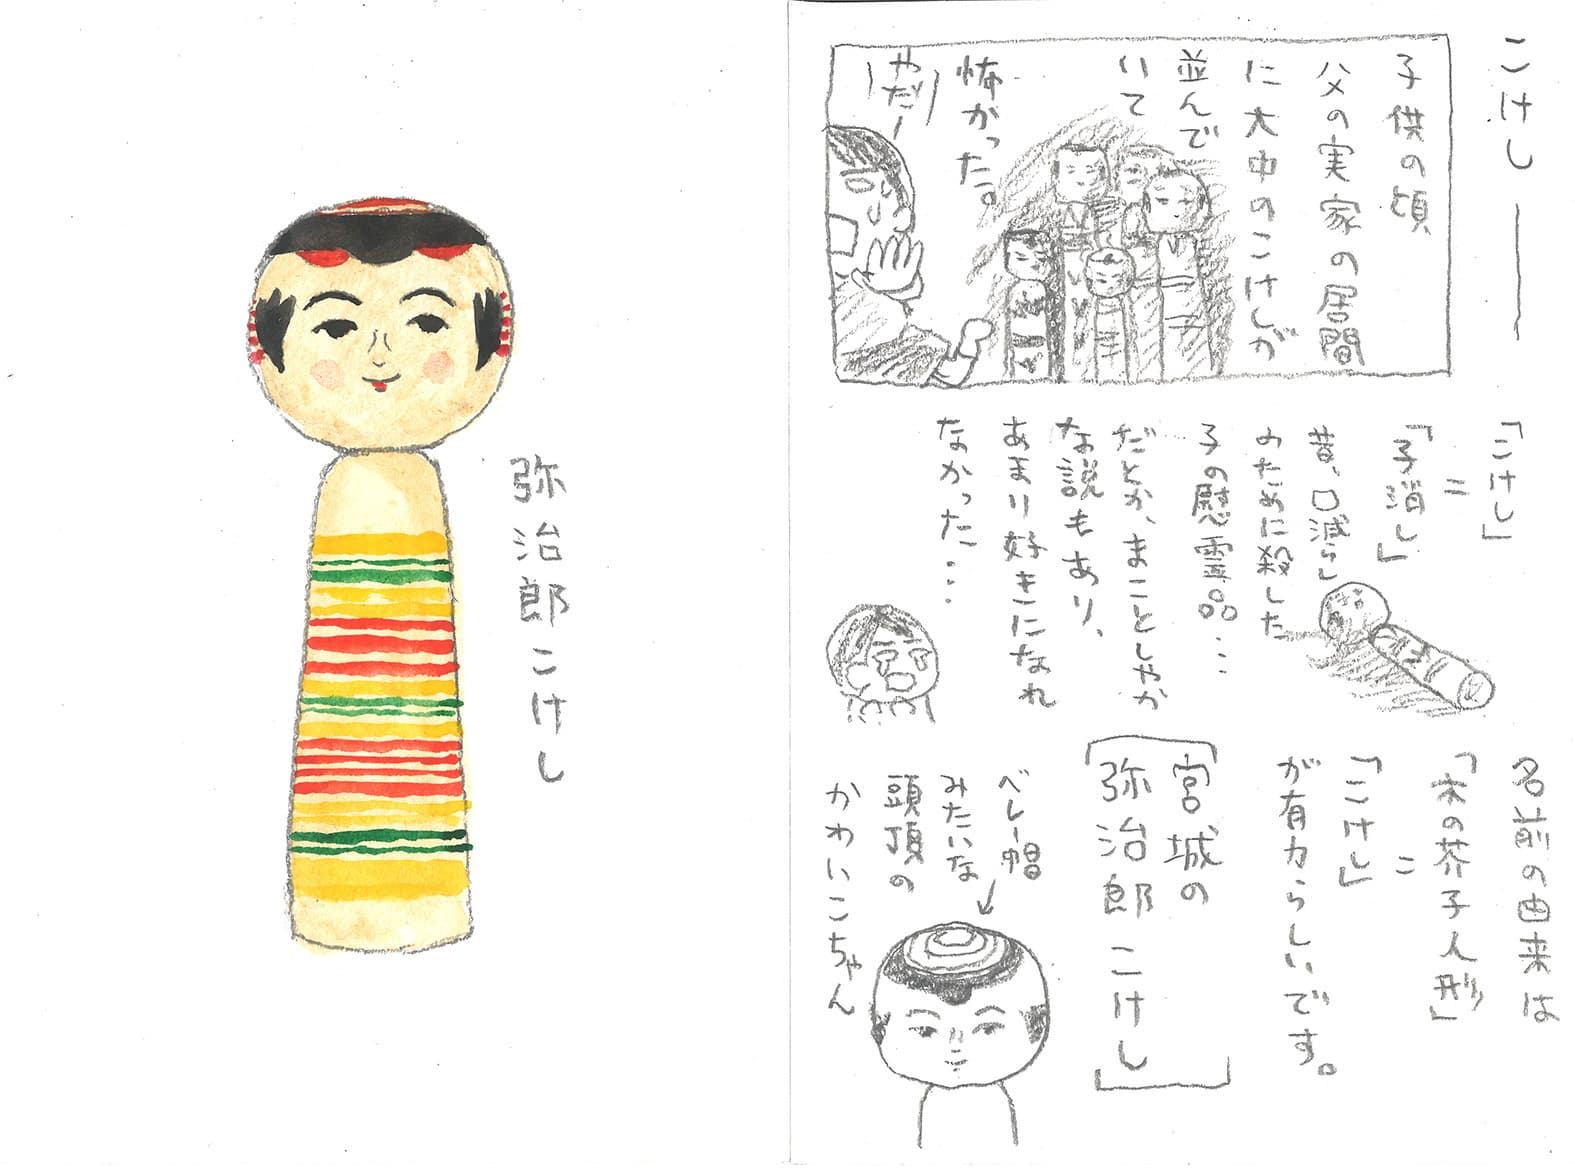 弥治郎こけし
こけし
子供の頃
父の実家の居間
に大中のこけしが
並んで
いて
怖かった。
やだー
「こけし」
=
「子消し」
昔、口減らし
のために殺した
子の慰霊品…
だとか、まことしやか
な説もあり、
あまり好きになれ
なかった…
名前の由来は
「木の芥子人形」
=
「こけし」
が有力らしいです。
宮城の
弥治郎こけし
ベレー帽
みたいな
頭頂の
かわいこちゃん